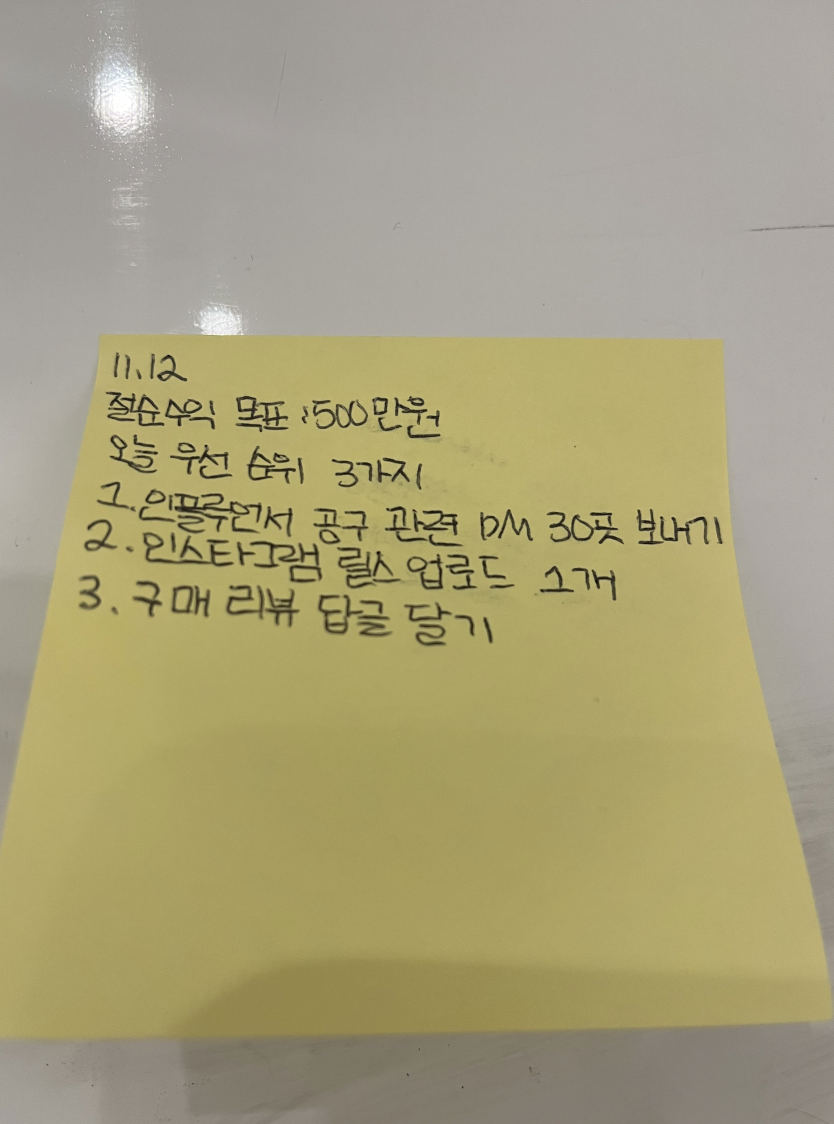 11.12
절순수익 목표 : 500만원
오늘 우선 순위 3가지
1. 인플루언서 공구 관련 DM 30곳 보내기
2. 인스타그램 릴스 업로드 1개
3. 구매 리뷰 답글 달기